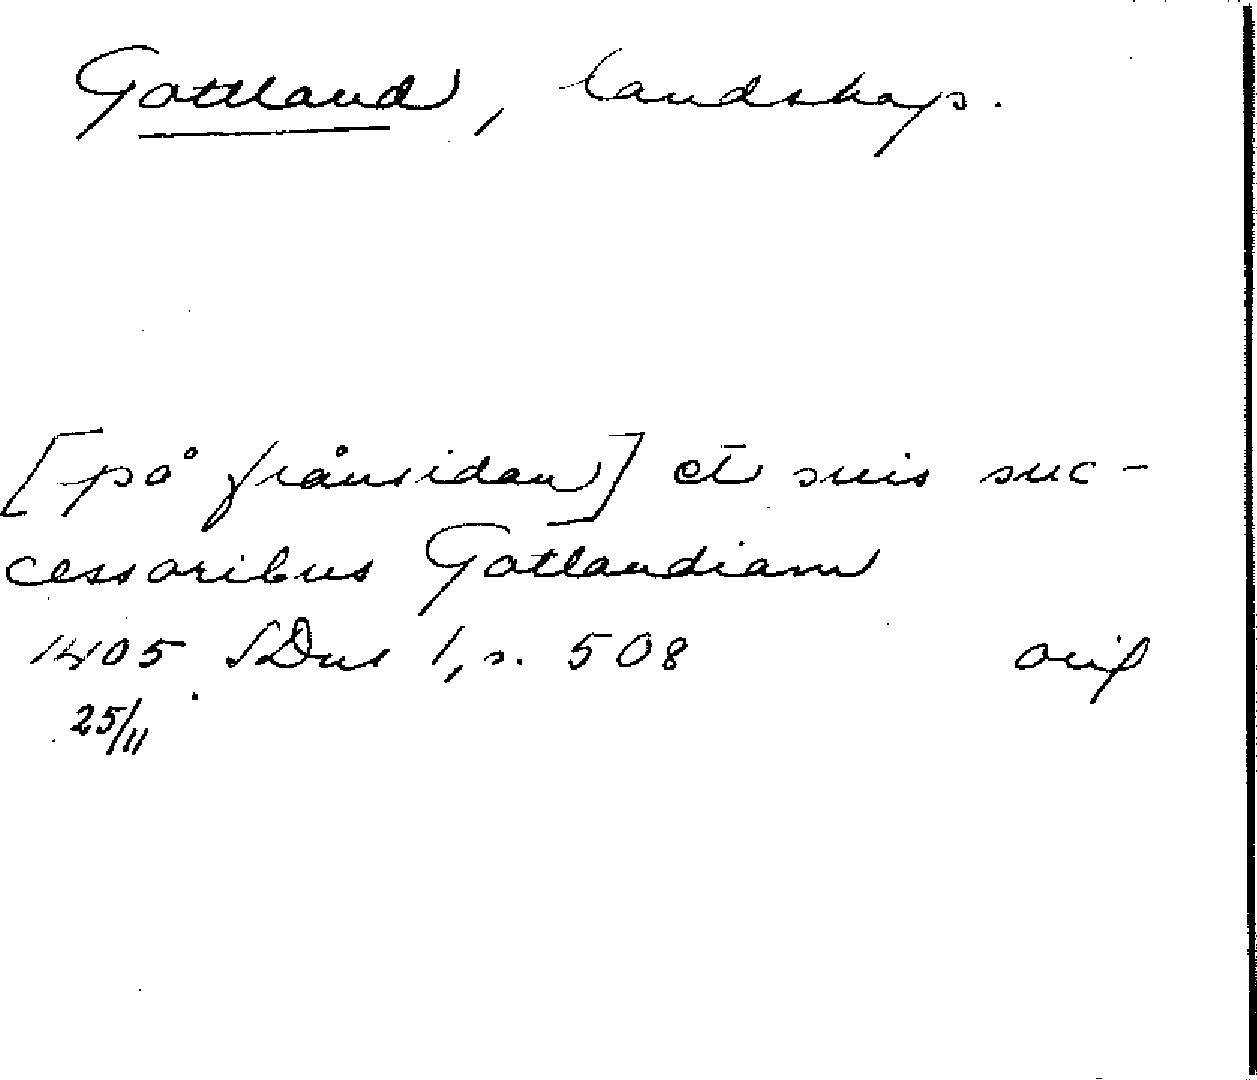 Gottland, landskap.
[på frånsidan] et suis suc-
cessoribus Gotlandiam
1405 SDns 1, s. 508 orig
25/11